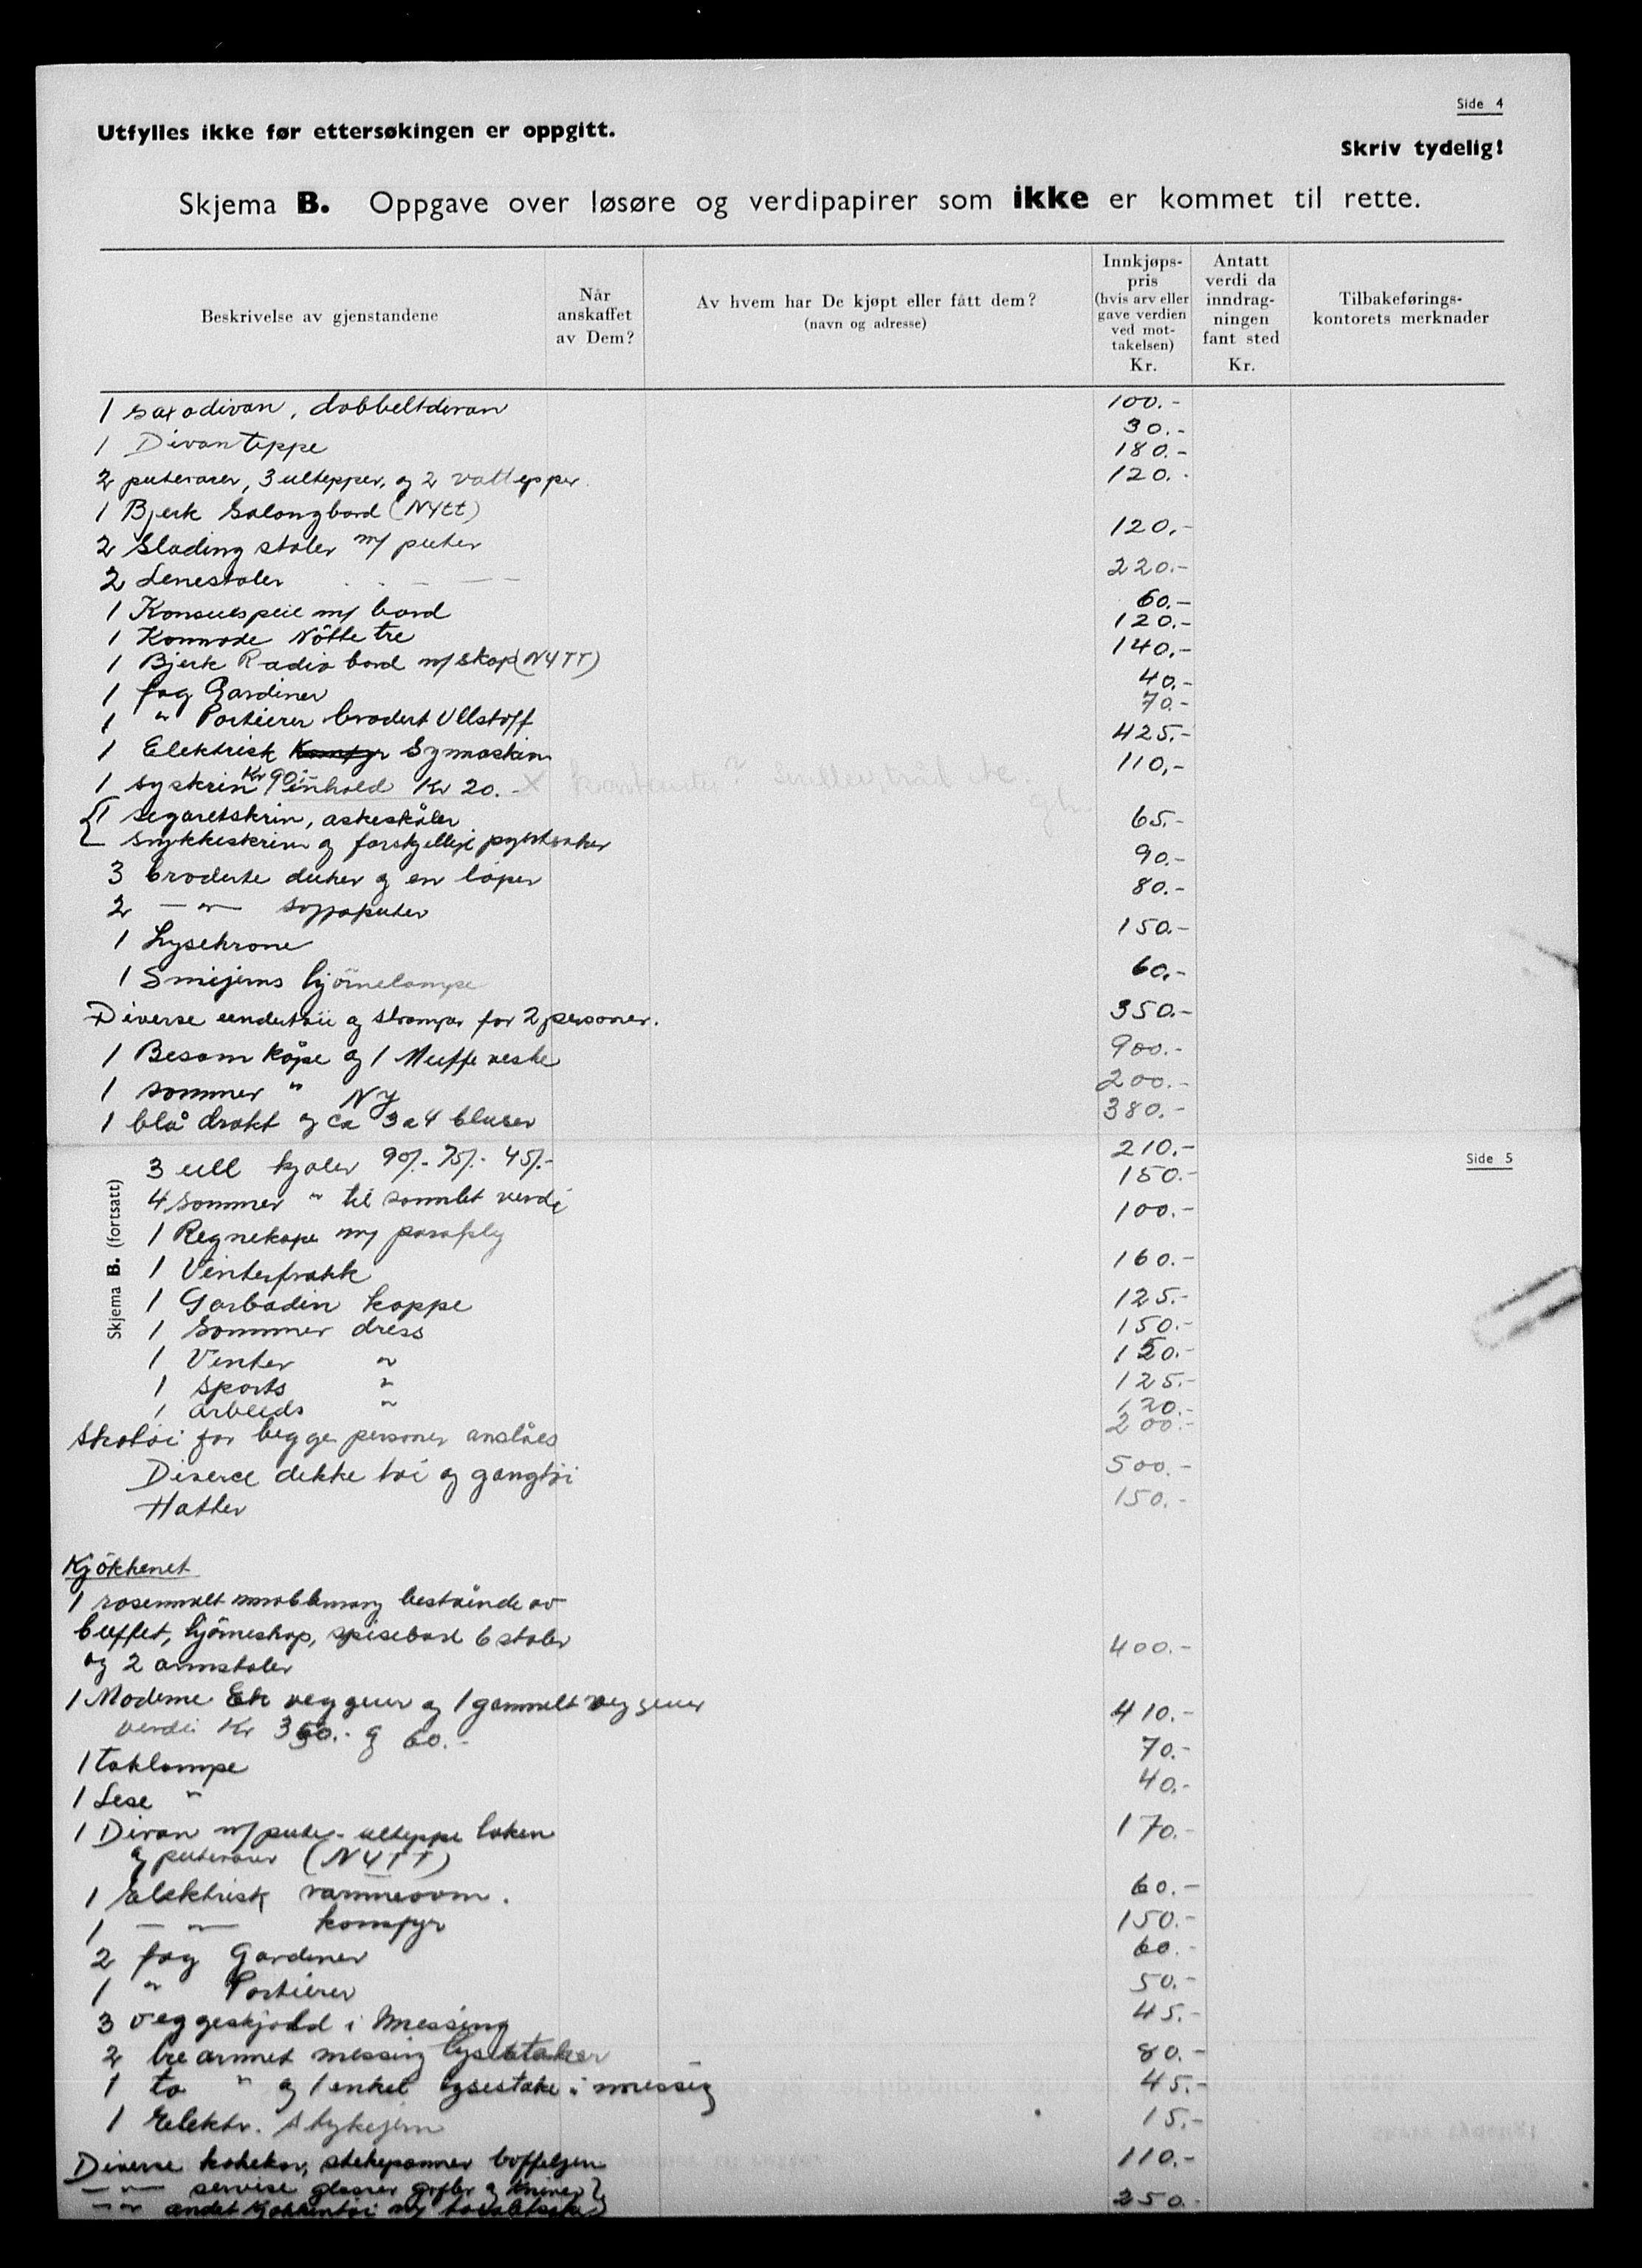 Side 4
Utfylles ikke før ettersøkingen er oppgitt.
Skriv tydelig!
Skjema B. Oppgave over løsøre og verdipapirer som ikke er kommet til rette.
Beskrivelse av gjenstandene
Når anskaffet av Dem?
Av hvem har De kjøpt eller fått dem? (navn og adresse)
Innkjøps-pris (hvis arv eller gave verdien ved mot-takelsen) Kr.
Antatt verdi da inndrag-ningen fant sted Kr.
Tilbakeførings-kontorets merknader
1 saxodivan, dobbeltdivan 100.-
1 Divanteppe 30.-
180.-
2 putevarer, 3 ultepper, og 2 vattepper 120.-
1 Bjerk Salongbord (Nytt) 120.-
2 Slading stoler m/ puter 220.-
2 Lenestoler - - - 60.-
1 Konsulspeil m/ bord 120.-
1 Kommode Nøtte tre 140.-
1 Bjerk Radio bord m/ skap (NYTT)
1 fag Gardiner 40.-
1 " Portierer brodert Ullstoff 70.-
1 Elektrisk Komfyr Symaskin 425.-
1 syskrin Kr 90.- inhold Kr 20.- 110.-
1 segaretskrin, askeskåler 65.-
smykkeskrin og forskjellige pyntsaker
3 broderte duker og en løper 90.-
2 -"- soffaputer 80.-
1 Lysekrone 150.-
1 Smijerns hjørnelampe 60.-
Diverse undertøi og strømper for 2 personer. 350.-
1 Besam kåpe og 1 Muffe veske 900.-
1 sommer " NY 200.-
1 blå drakt og ca 3 a 4 bluser 380.-
Side 5
Skjema B. (fortsatt)
3 ull kjoler 90/- 75/- 45/- 210.-
4 sommer " til samlet verdi 150.-
1 Regnekape m/ paraply 100.-
1 Vinterfrakk 160.-
1 Garbadin kappe 125.-
1 Sommer dress 150.-
1 Vinter " 150.-
1 Sports " 125.-
1 arbeids " 120.-
Skotøi for begge personer anslåes 200.-
Diverce dekke tøi og gangtøi 500.-
Hatter 150.-
Kjøkkenet
1 rosenmalt møblemang bestående av
buffet, hjørneskap, spisebord 6 stoler
og 2 armstoler 400.-
1 Moderne Ek veggeur og 1 gammelt veggeur 410.-
verdi Kr 350.- og 60.-
1 taklampe 70.-
1 Lese " 40.-
1 Divan m/ puter - ulteppe laken 170.-
og putevarer (NYTT)
1 Elektrisk varmeovn. 60.-
1 -"- komfyr 150.-
2 fag Gardiner 60.-
1 " Portierer 50.-
3 veggeskjold i Messing 45.-
2 tre armet messing lysestaker 80.-
1 to " og 1 enkel lysestake i messing 45.-
1 Elektr. strykejern 15.-
Diverse kokekar, stekepanner boffeljern 110.-
-"- servise glasser gafler og kniver
-"- andet kjøkkentøi 250.-